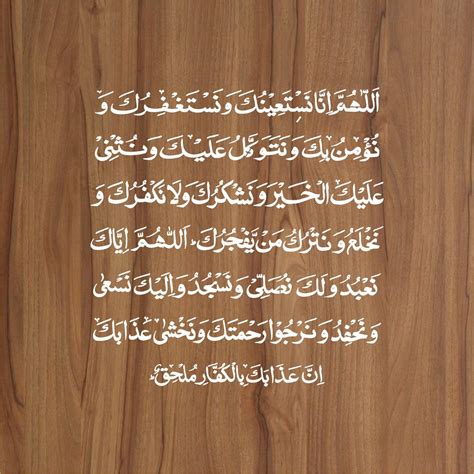 اَللّٰهُمَّ اِنَّا نَسْتَعِيْنُكَ وَنَسْتَغْفِرُكَ وَ
نُؤْمِنُ بِكَ وَنَتَوَكَّلُ عَلَيْكَ وَنُثْنِيْ
عَلَيْكَ الْخَيْرَ وَنَشْكُرُكَ وَلَا نَكْفُرُكَ وَ
نَخْلَعُ وَنَتْرُكُ مَنْ يَّفْجُرُكَ اَللّٰهُمَّ اِيَّاكَ
نَعْبُدُ وَلَكَ نُصَلِّيْ وَنَسْجُدُ وَاِلَيْكَ نَسْعٰى
وَنَحْفِدُ وَنَرْجُوْا رَحْمَتَكَ وَنَخْشٰى عَذَابَكَ
اِنَّ عَذَابَكَ بِالْكُفَّارِ مُلْحِقٌ